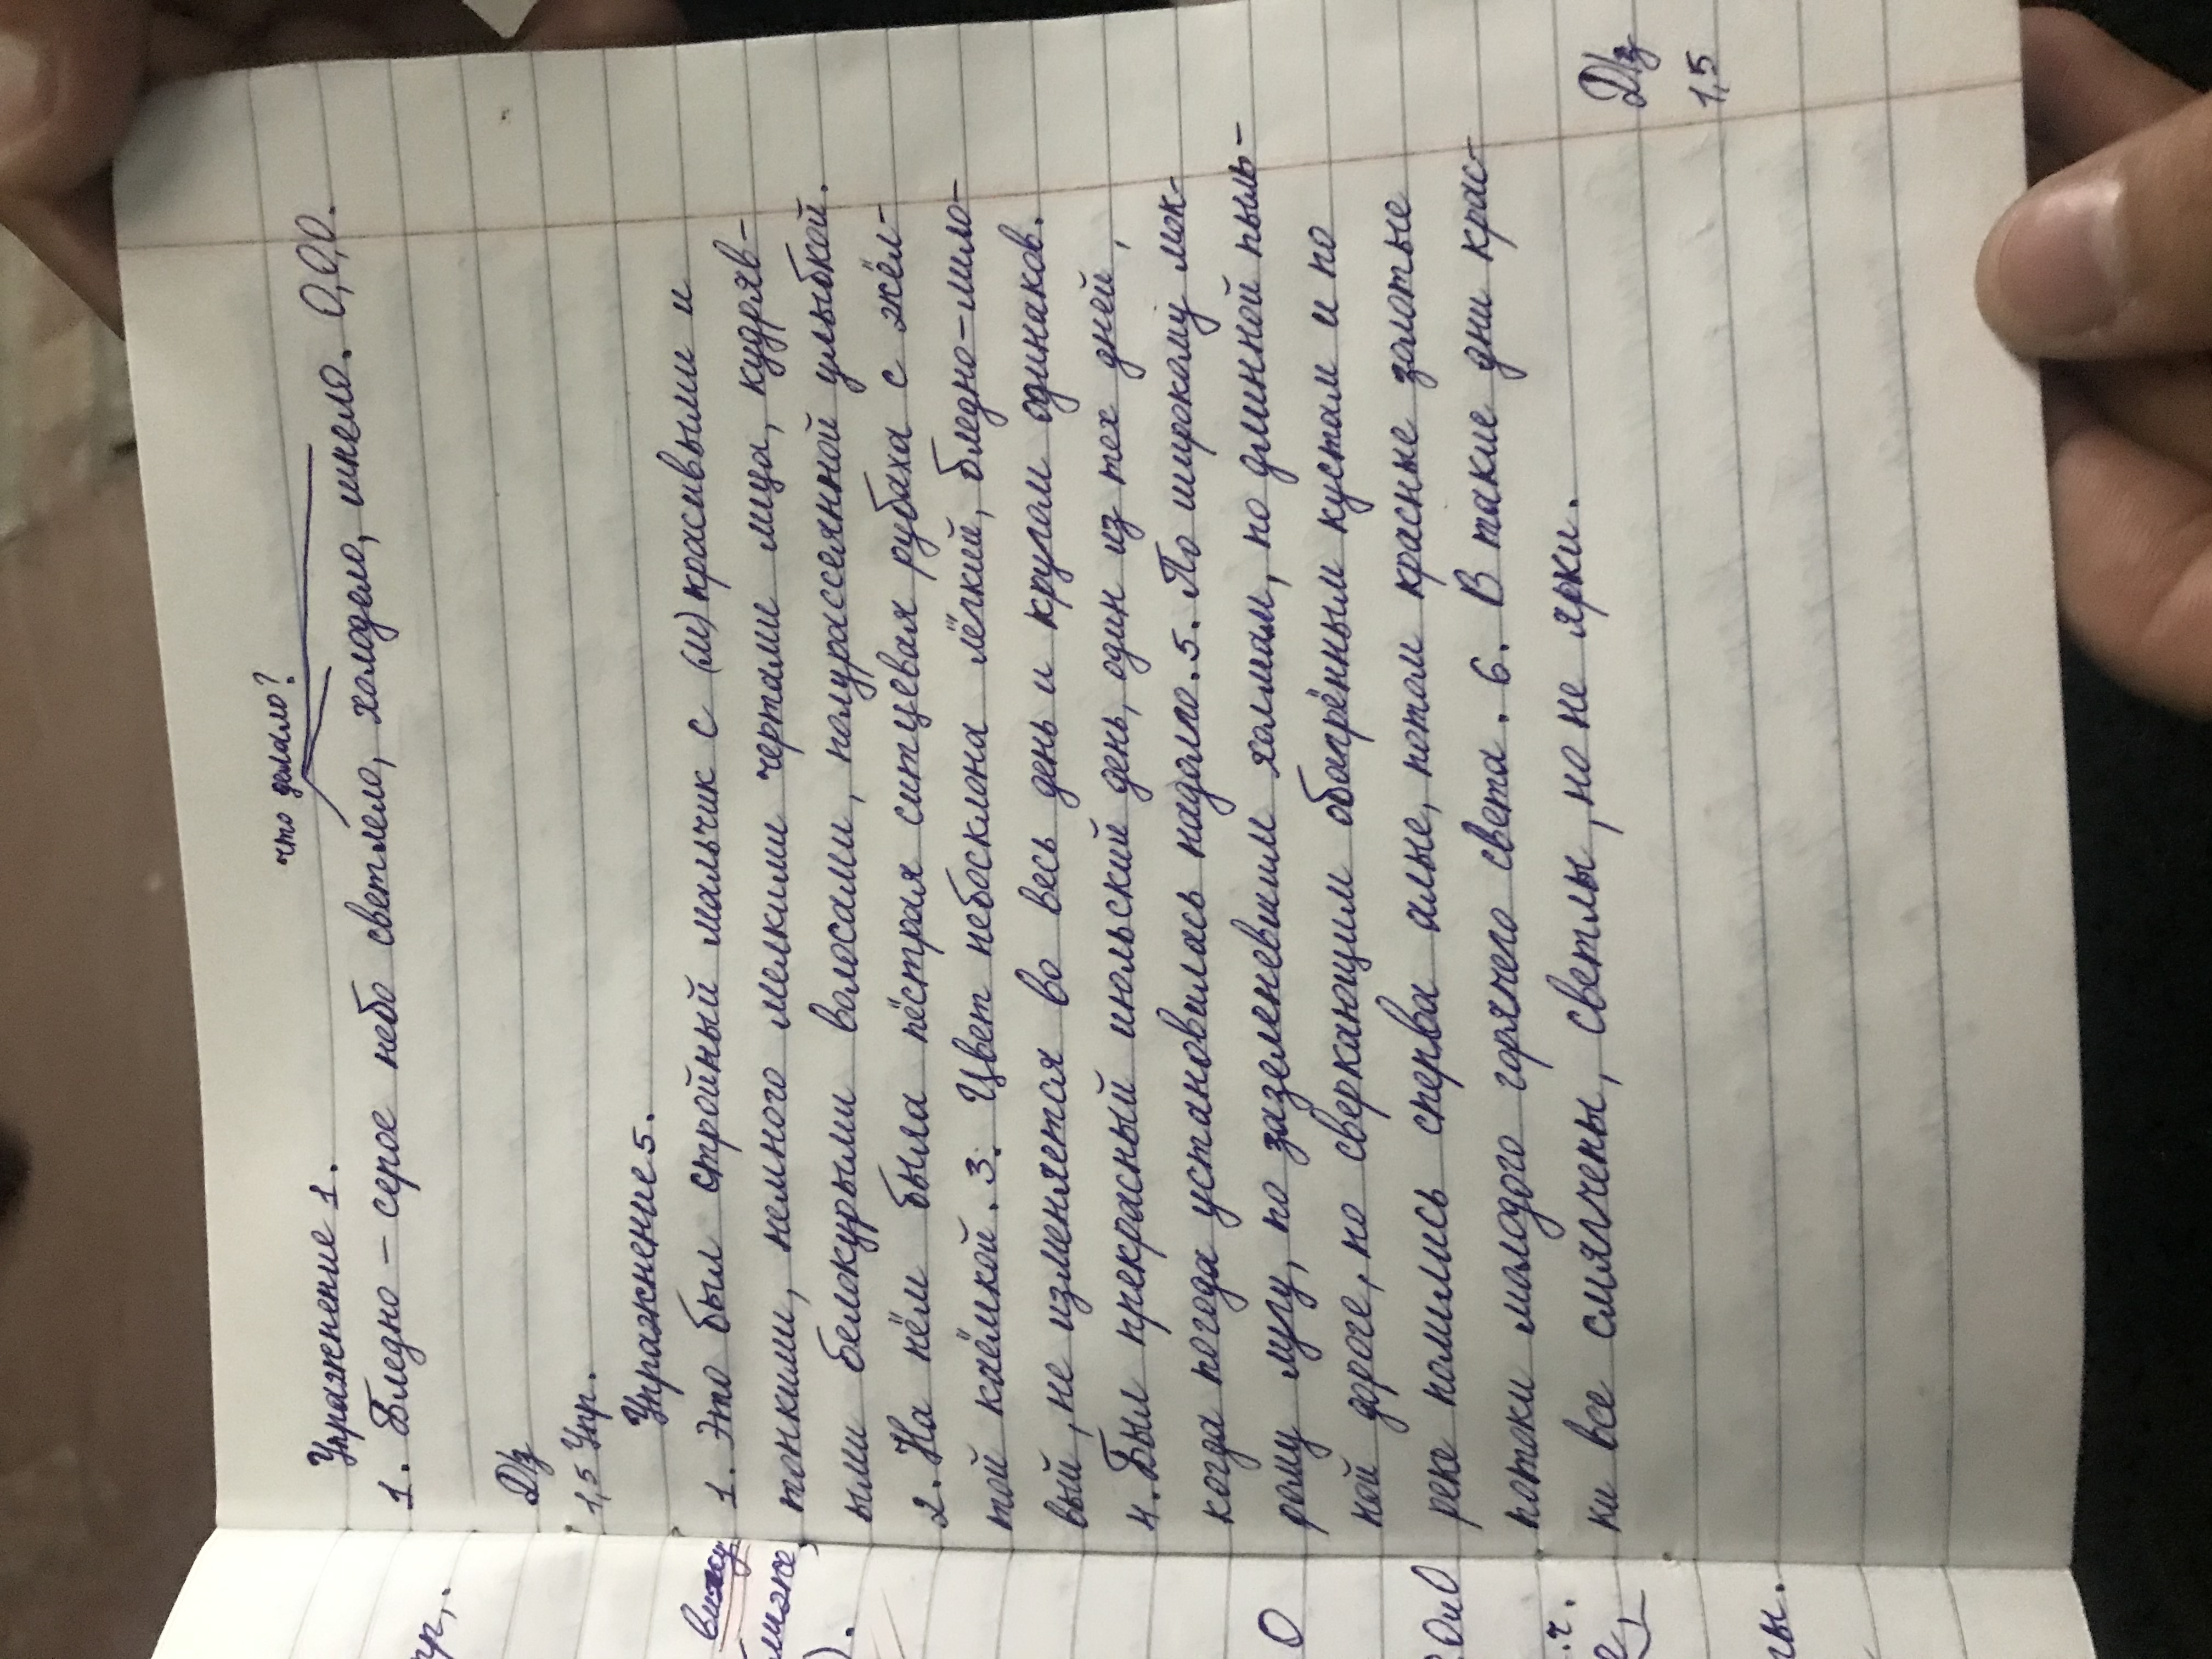 что делало?
Упражнение 1.
1. Бледно – серое небо светлело, холодело, синело. О,О,О.
Д/з
1,5 Упр.
Упражнение 5.
1. Это был стройный мальчик с (м) красивыми и
тонкими, немного мелкими чертами лица, кудряв-
ыми белокурыми волосами, полурассеянной улыбкой.
2. На нём была пёстрая ситцевая рубаха с жёл-
той каёмкой. 3. Цвет небосклона лёгкий, бледно-лило-
вый, не изменяется во весь день и кругом одинаков.
4. Был прекрасный июльский день, один из тех дней,
когда погода установилась надолго. 5. По широкому мок-
рому лугу, по зазеленевшим холмам, по длинной пыль-
ной дороге, по сверкающим обагрённым кустам и по
реке полились сперва алые, потом красные золотые
потоки молодого горячего света. 6. В такие дни крас-
ки все смягчены, светлы, но не ярки.
Д/з
1,5
вижу
ближе,
).
О
О и О
.г.